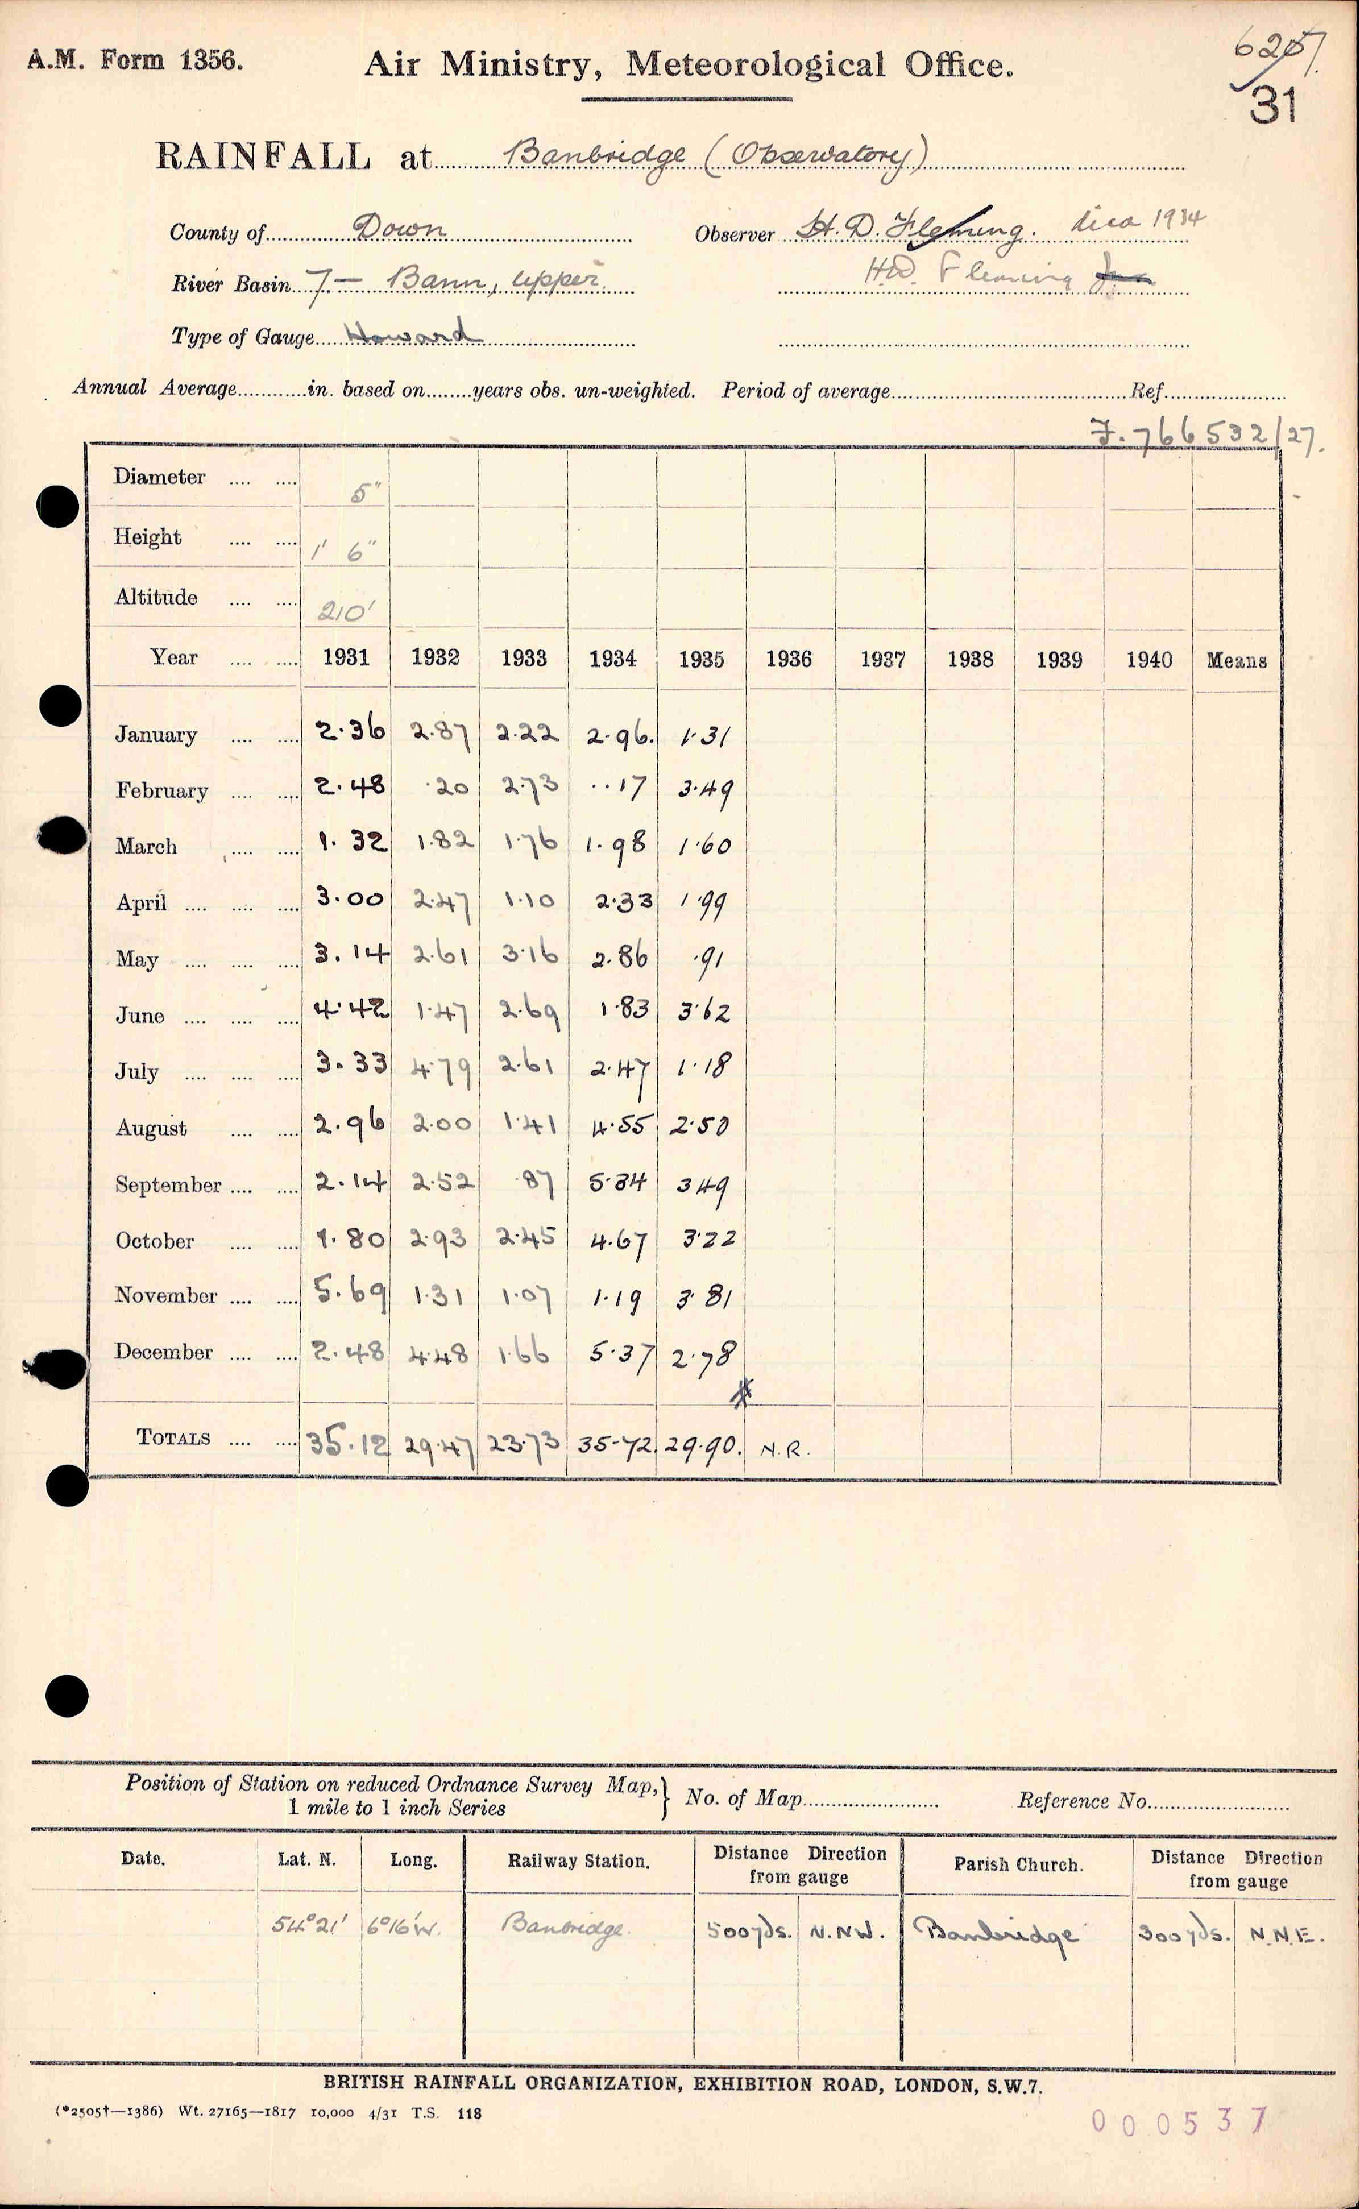 A.M. Form 1356.
Air Ministry, Meteorological Office.
31
RAINFALL at Banbridge (Observatory)
County of Down Observer H. D. Fleming. died 1934
River Basin 7 — Bann, Upper. H.D. Fleming Jr
Type of Gauge Howard
Annual Average............in. based on........years obs. un-weighted. Period of average..........Ref..........
J. 766532/27.
Diameter .... .... 5"
Height .... .... 1' 6"
Altitude .... .... 210'
Year .... .... 1931 1932 1933 1934 1935 1936 1937 1938 1939 1940 Means
January .... .... 2.36 2.87 2.22 2.96. 1.31
February .... .... 2.48 .20 2.73 ..17 3.49
March .... .... 1.32 1.82 1.76 1.98 1.60
April .... .... .... 3.00 2.47 1.10 2.33 1.99
May .... .... .... 3.14 2.61 3.16 2.86 .91
June .... .... .... 4.42 1.47 2.69 1.83 3.62
July .... .... .... 3.33 4.79 2.61 2.47 1.18
August .... .... 2.96 2.00 1.41 4.55 2.50
September .... .... 2.14 2.52 .87 5.34 3.49
October .... .... 1.80 2.93 2.45 4.67 3.22
November .... .... 5.69 1.31 1.07 1.19 3.81
December .... .... 2.48 4.48 1.66 5.37 2.78
*
TOTALS .... .... 35.12 29.47 23.73 35.72. 29.90. N.R.
Position of Station on reduced Ordnance Survey Map,} No. of Map.......... Reference No..........
1 mile to 1 inch Series
Date. Lat. N. Long. Railway Station. Distance Direction from gauge Parish Church. Distance Direction from gauge
54°21' 6°16'W. Banbridge. 500yds. N.NW. Banbridge 300yds. N.N.E.
BRITISH RAINFALL ORGANIZATION, EXHIBITION ROAD, LONDON, S.W.7.
(*2505†—1386) Wt. 27165—1817 10,000 4/31 T.S. 118
000537